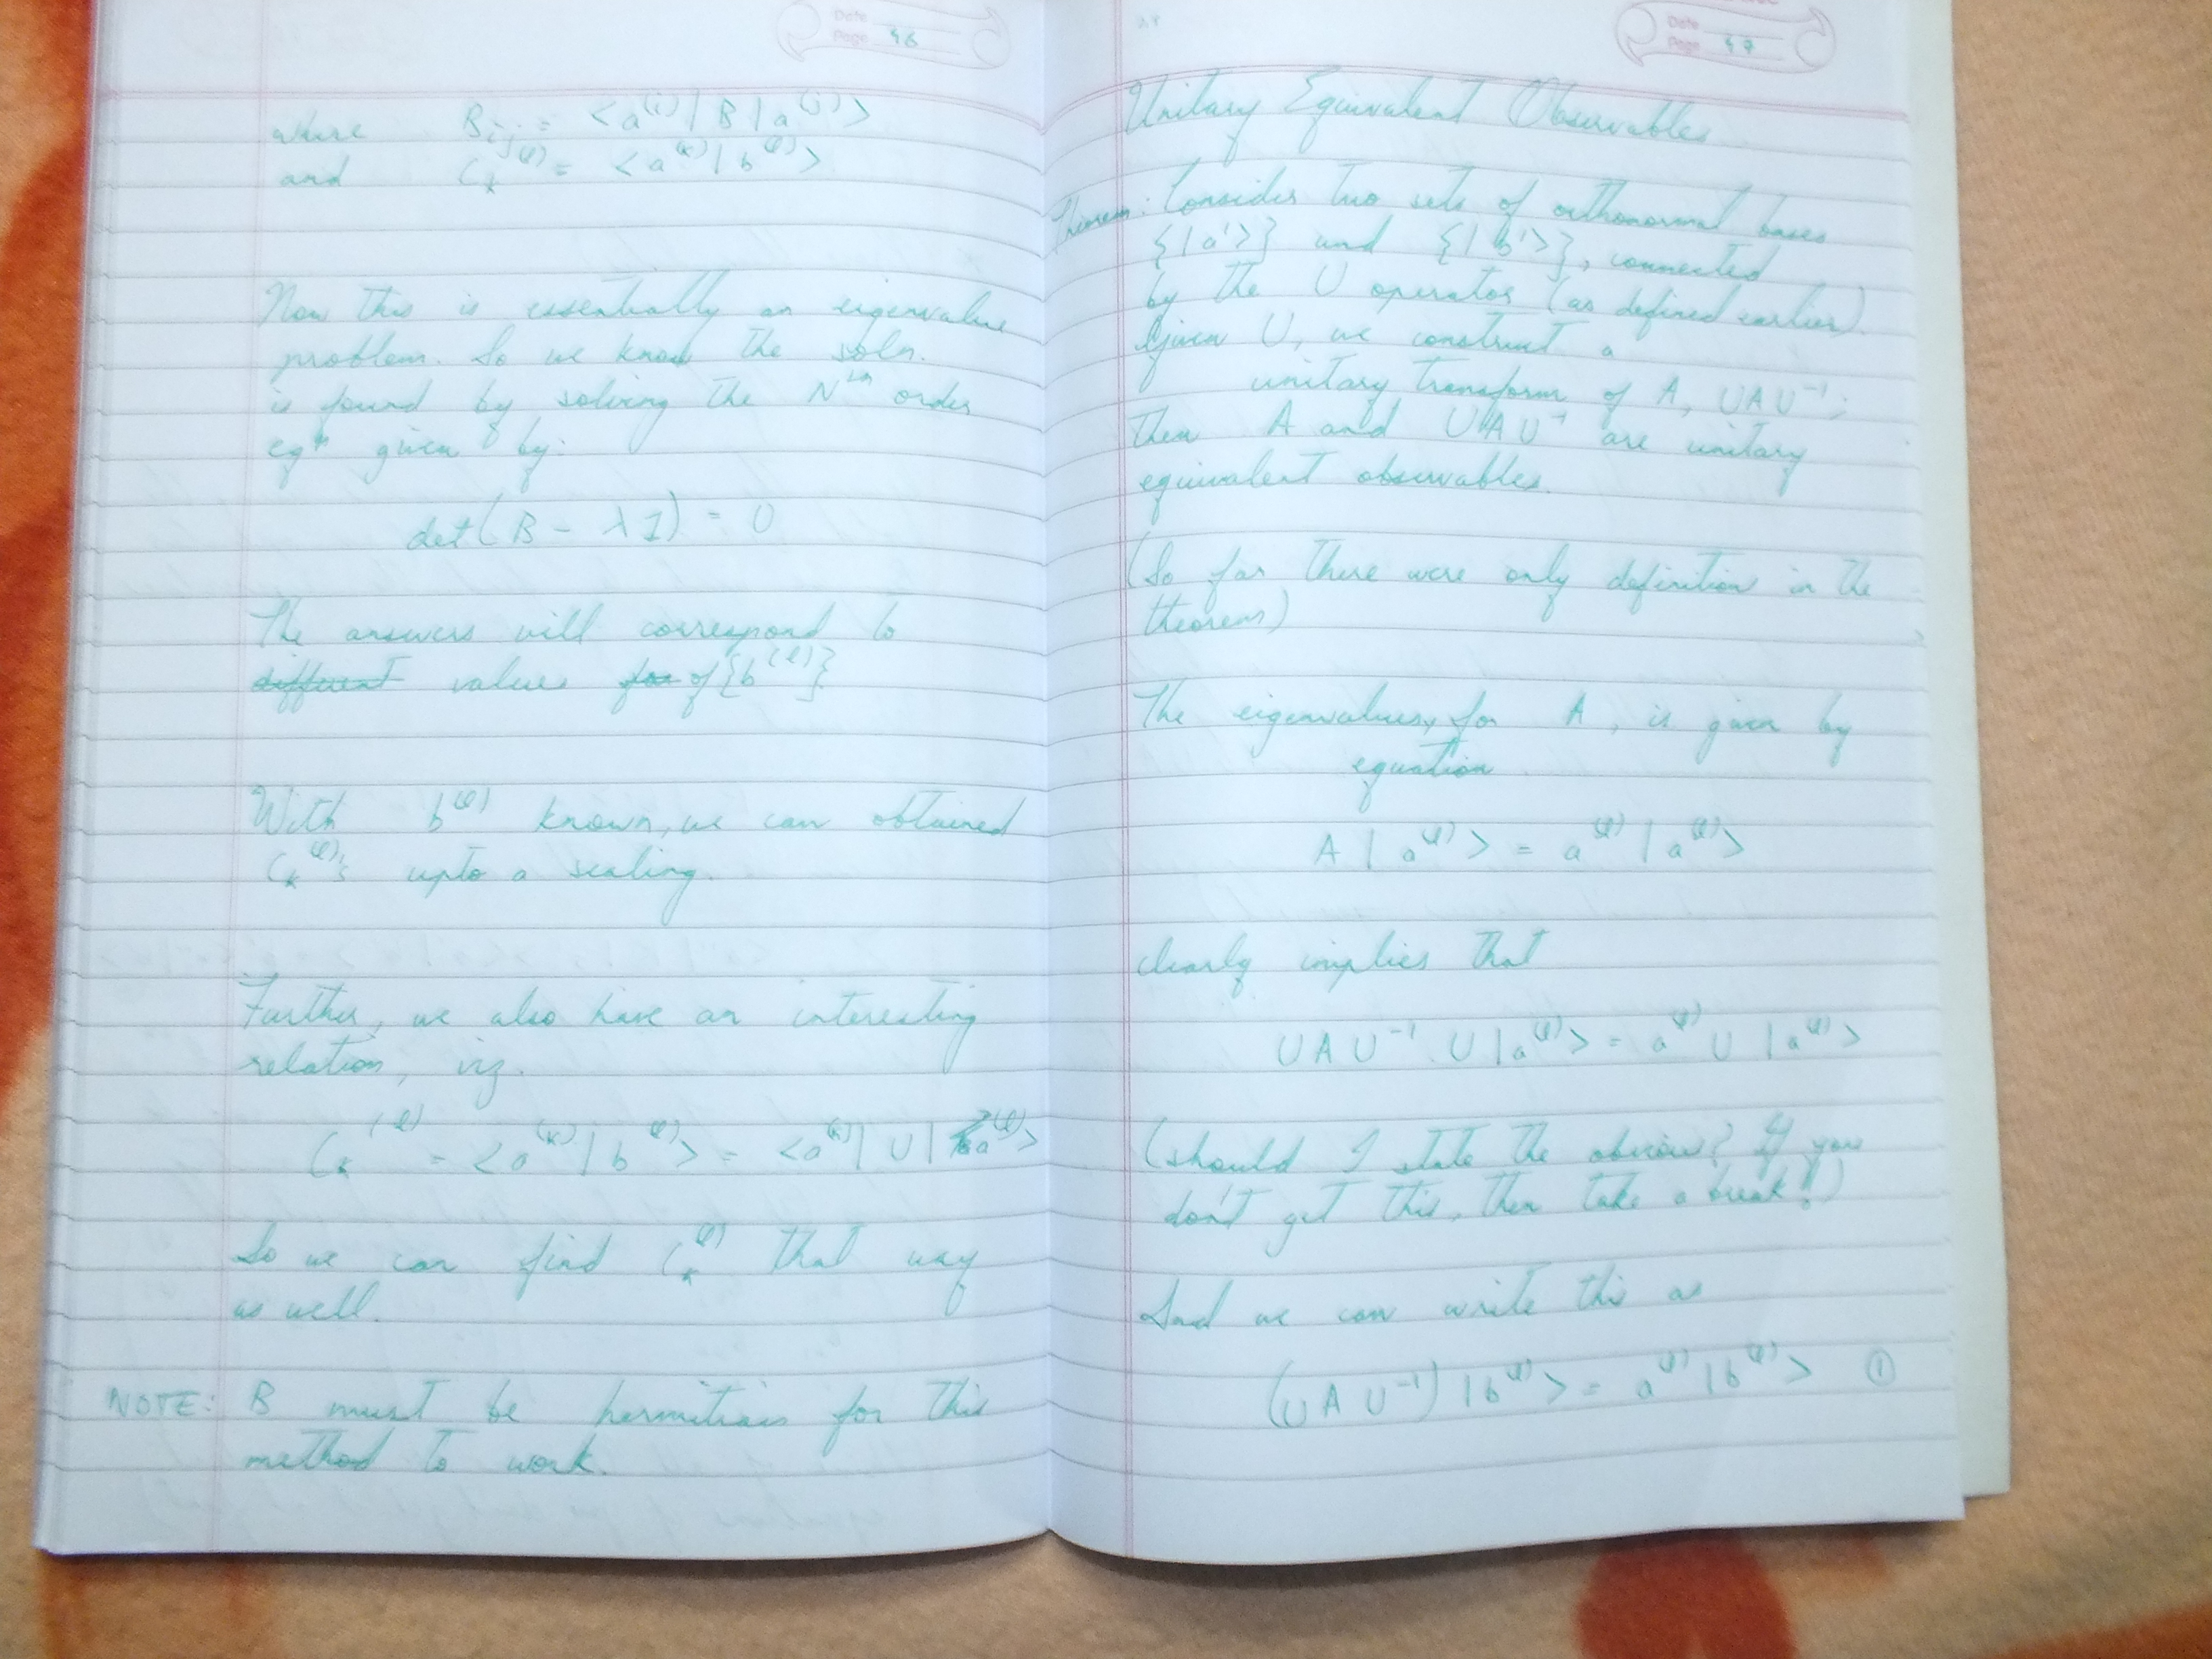 Date
Page 46
where B_ij = <a^(i) | B | a^(j)>
and C_k^(l) = <a^(k) | b^(l)>
Now this is essentially an eigenvalue
problem. So we know the soln.
is found by solving the N^th order
eq^n given by:
det(B - λ1) = 0
The answers will correspond to
different values for of {b^(l)}
With b^(l) known, we can obtained
C_k^(l)'s upto a scaling.
Further, we also have an interesting
relation, viz.
C_k^(l) = <a^(k) | b^(l)> = <a^(k) | U | a^(l)>
So we can find C_k^(l) that way
as well.
NOTE: B must be hermitian for this
method to work.
Date
Page 47
Unitary Equivalent Observables
Theorem: Consider two sets of orthonormal bases
{|a'>} and {|b'>}, connected
by the U operator (as defined earlier).
Given U, we construct a
unitary transform of A, UAU^-1;
then A and UAU^-1 are unitary
equivalent observables.
(So far there were only definition in the
theorem)
The eigenvalues, for A, is given by
equation
A | a^(l)> = a^(l) | a^(l)>
clearly implies that
U A U^-1 . U | a^(l)> = a^(l) U | a^(l)>
(should I state the obvious? If you
don't get this, then take a break!)
And we can write this as
(U A U^-1) | b^(l)> = a^(l) | b^(l)> ①